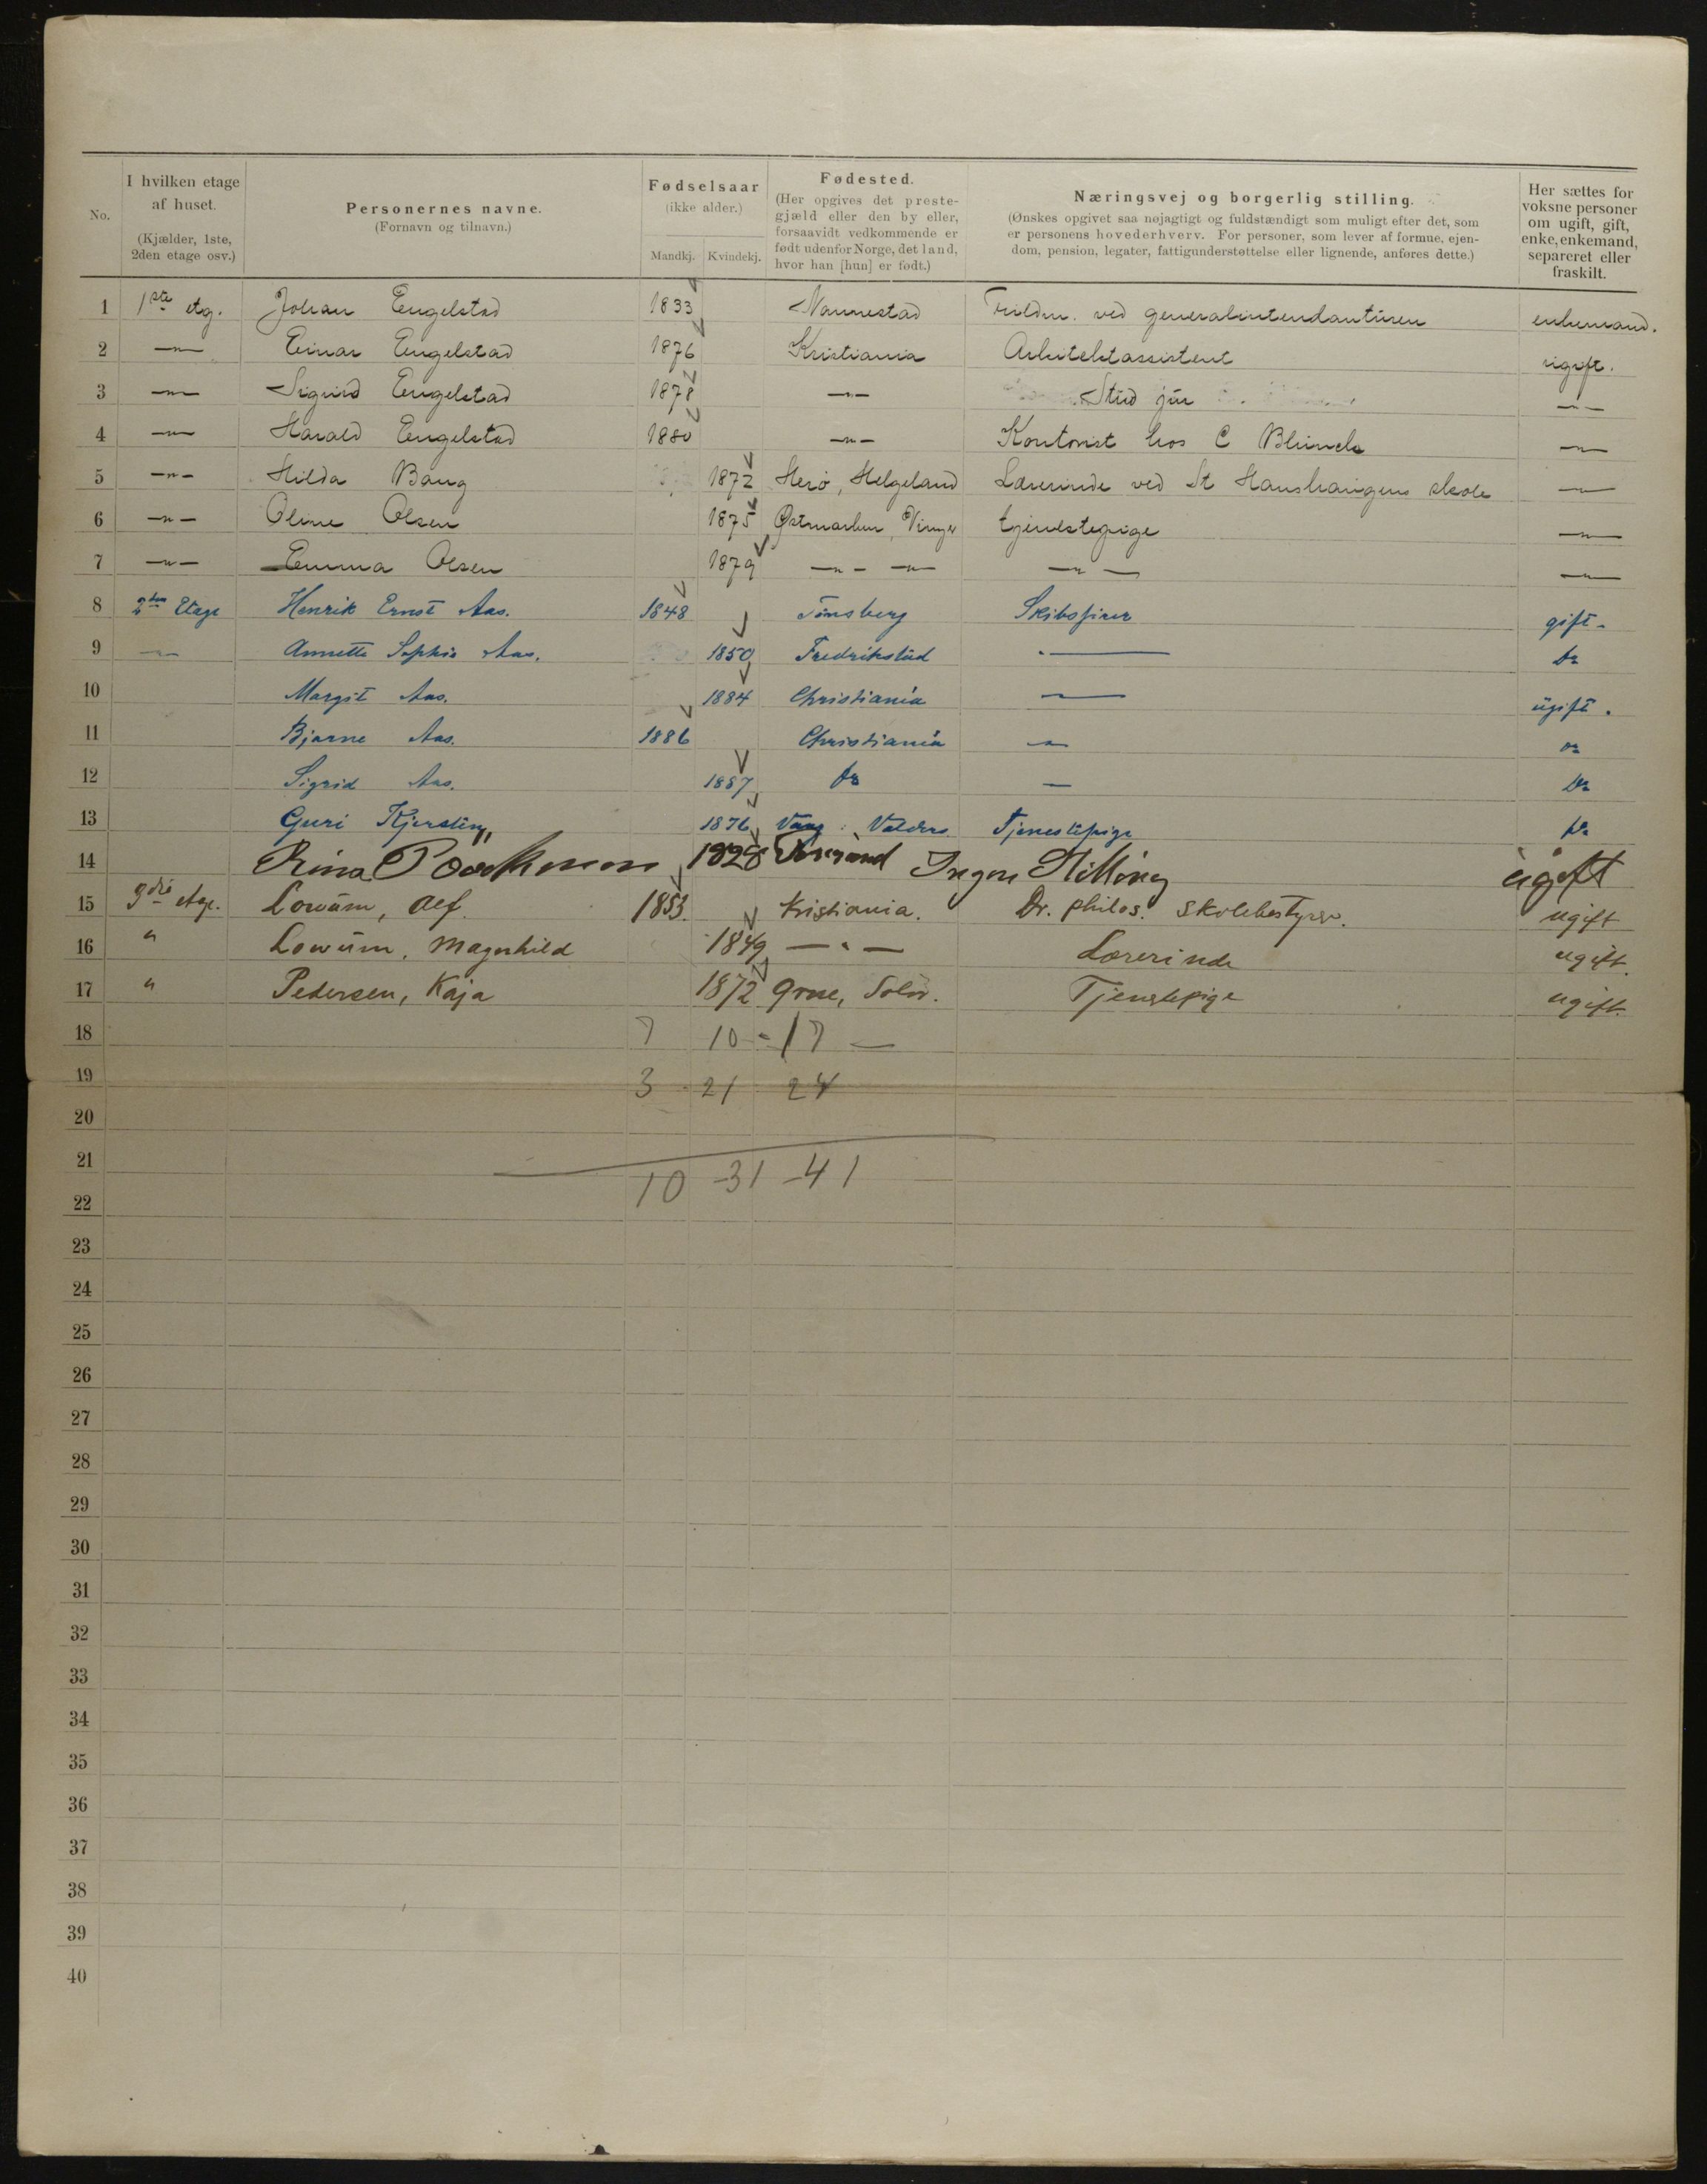 No.
I hvilken etage
af huset.
(Kjælder, 1ste,
2den etage osv.)
Personernes navne.
(Fornavn og tilnavn.)
Fødselsaar
(ikke alder.)
Mandkj. Kvindekj.
Fødested.
(Her opgives det preste-
gjæld eller den by eller,
forsaavidt vedkommende er
født udenfor Norge, det land,
hvor han [hun] er født.)
Næringsvej og borgerlig stilling.
(Ønskes opgivet saa nøjagtigt og fuldstændigt som muligt efter det, som
er personens hovederhverv. For personer, som lever af formue, ejen-
dom, pension, legater, fattigunderstøttelse eller lignende, anføres dette.)
Her sættes for
voksne personer
om ugift, gift,
enke, enkemand,
separeret eller
fraskilt.
1 1ste etg. Johan Engelstad 1833 Nannestad Fuldm. ved generalintendanturen enkemand.
2 —"— Einar Engelstad 1876 Kristiania Arkitektassistent ugift.
3 —"— Sigurd Engelstad 1878 —"— Stud jur —"—
4 —"— Harald Engelstad 1880 —"— Kontorist hos C —"—
5 —"— Hilda Bang 1872 Herø, Helgeland Lærerinde ved St Hanshaugens skole —"—
6 —"— Oline Olsen 1875 Østmarken, Vinger tjenestepige —"—
7 —"— Emma Olsen 1879 —"— —"— —"— —"—
8 2den Etage Henrik Ernst Aas. 1848 Tønsberg Skibsfører gift.
9 —"— Annette Sophie Aas. 1850 Fredrikstad — Do
10 Margit Aas. 1884 Christiania — ugift.
11 Bjarne Aas. 1886 Christiania — Do
12 Sigrid Aas. 1887 Do — Do
13 Guri Kjerstin 1876 Vang Valders Tjenestepige Do
14 Rina 1828 Ingen Stilling ugift
15 3die etage. Lowum, Alf. 1853 Kristiania. Dr. philos. skolebestyrer. ugift
16 " Lowum, Magnhild 1849 —"— Lærerinde ugift.
17 " Pedersen, Kaja 1872 Grue, Solør. Tjenstepige ugift.
18 7 10 - 17 —
19 3 - 21 24
20
21
10 - 31 - 41
22
23
24
25
26
27
28
29
30
31
32
33
34
35
36
37
38
39
40